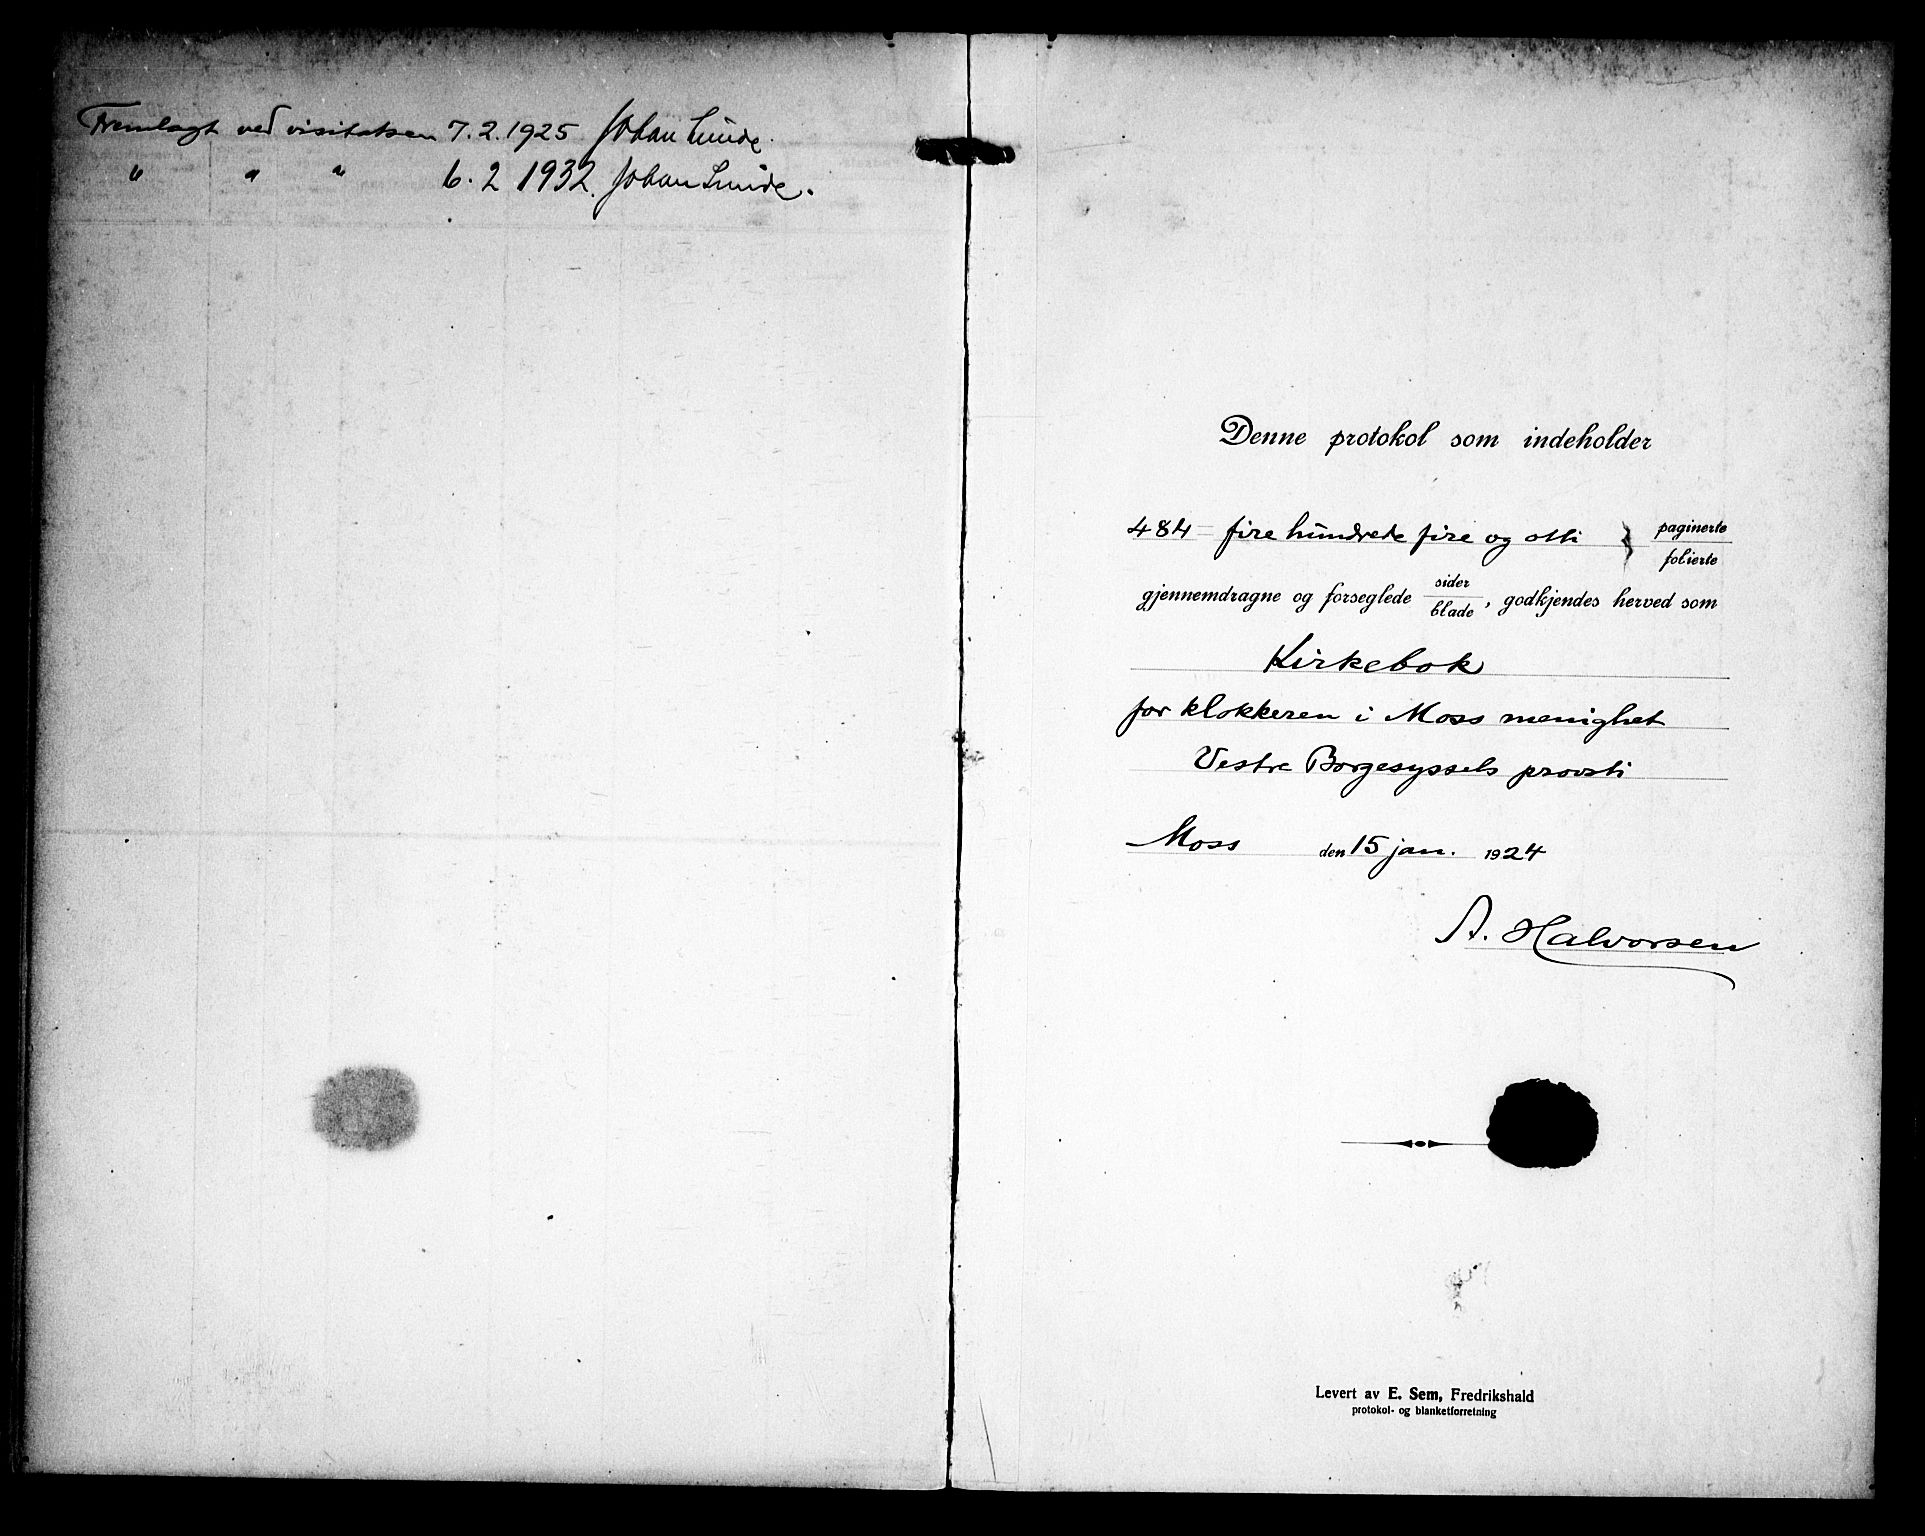 Fremlagt ved visitatsen 7.2.1925 Johan Lunde.
" " " 6.2 1932. Johan Lunde.
Denne protokol som indeholder
484 – fire hundrede fire og otti } paginerte
folierte
gjennemdragne og forseglede sider
blade, godkjendes herved som
Kirkebok
for klokkeren i Moss menighet
Vestre Borgesyssels provsti
Moss den 15 jan. 1924
A. Halvorsen
Levert av E. Sem, Fredrikshald
protokol- og blanketforretning